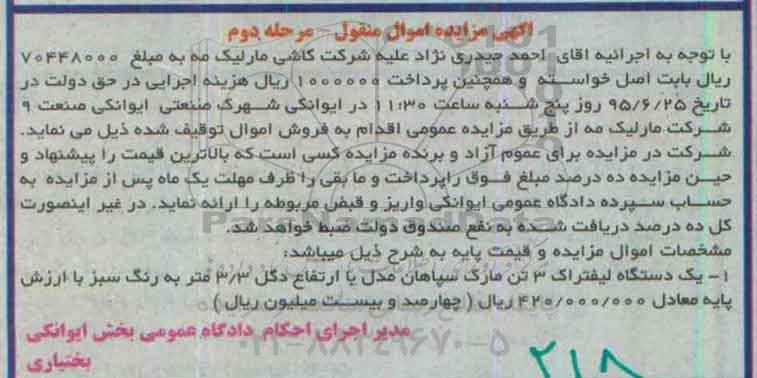 آگهی مزایده اموال منقول - مرحله دوم
با توجه به اجرائیه آقای احمد حیدری نژاد علیه شرکت کاشی مارلیک مه به مبلغ ۷۰۴۴۸۰۰۰
ریال بابت اصل خواسته و همچنین پرداخت ۱۰۰۰۰۰۰ ریال هزینه اجرایی در حق دولت در
تاریخ ۹۵/۶/۲۵ روز پنج شنبه ساعت ۱۱:۳۰ در ایوانکی شهرک صنعتی ایوانکی صنعت ۹
شرکت مارلیک مه از طریق مزایده عمومی اقدام به فروش اموال توقیف شده ذیل می نماید.
شرکت در مزایده برای عموم آزاد و برنده مزایده کسی است که بالاترین قیمت را پیشنهاد و
حین مزایده ده درصد مبلغ فوق راپرداخت و ما بقی را ظرف مهلت یک ماه پس از مزایده به
حساب سپرده دادگاه عمومی ایوانکی واریز و قبض مربوطه را ارائه نماید. در غیر اینصورت
کل ده درصد دریافت شده به نفع صندوق دولت ضبط خواهد شد.
مشخصات اموال مزایده و قیمت پایه به شرح ذیل میباشد:
۱- یک دستگاه لیفتراک ۳ تن مارک سپاهان مدل با ارتفاع دکل ۳/۳ متر به رنگ سبز با ارزش
پایه معادل ۴۲۰/۰۰۰/۰۰۰ ریال ( چهارصد و بیست میلیون ریال )
مدیر اجرای احکام دادگاه عمومی بخش ایوانکی
بختیاری
۲۱۸
ParsNamadData
۰۲۱-۸۸۳۴۹۶۷۰-۵